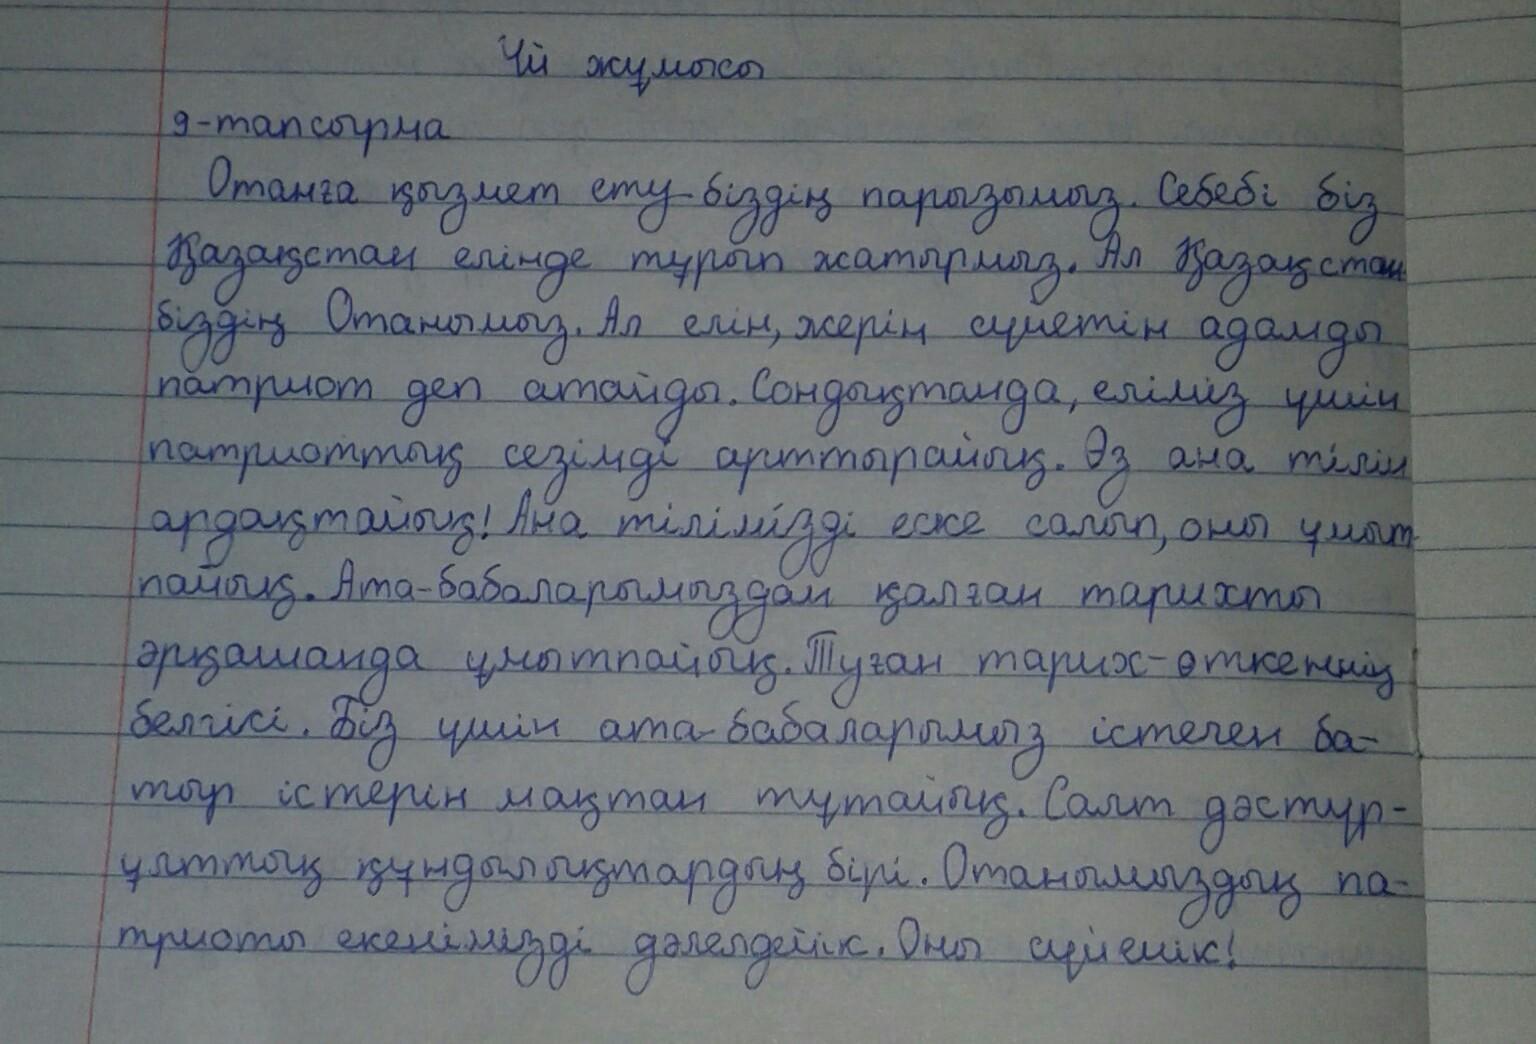 Үй жұмысы
9-тапсырма
Отанға қызмет ету-біздің парызымыз. Себебі біз
Қазақстан елінде тұрып жатырмыз. Ал Қазақстан
біздің Отанымыз. Ал елін, жерін сүйетін адамды
патриот деп атайды. Сондықтанда, еліміз үшін
патриоттық сезімді арттырайық. Өз ана тілін
ардақтайық! Ана тілімізді еске салып, оны ұмыт
пайық. Ата-бабаларымыздан қалған тарихты
әрқашанда ұмытпайық. Туған тарих-өткеннің
белгісі. Біз үшін ата-бабаларымыз істеген ба-
тыр істерін мақтан тұтайық. Салт дәстүр-
ұлттық құндылықтардың бірі. Отанымыздың па-
триоты екенімізді дәлелдейік. Оны сүйейік!